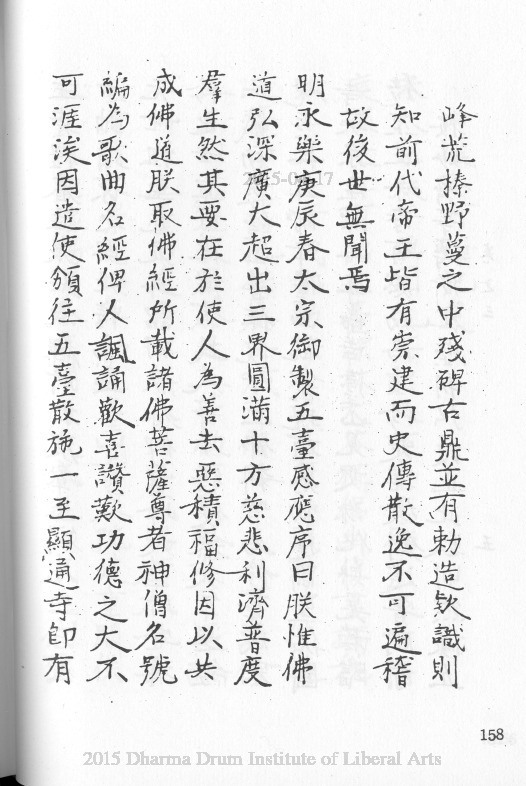 峰荒榛野蔓之中殘碑古鼎並有勅造欵識則
知前代帝王皆有崇建而史傳散逸不可遍稽
故後世無聞焉
明永樂庚辰春太宗御製五臺感應序曰朕惟佛
道弘深廣大超出三界圓滿十方慈悲利濟普度
羣生然其要在於使人為善去惡積福修因以共
成佛道朕取佛經所載諸佛菩薩尊者神僧名號
編為歌曲名經俾人諷誦歡喜讚歎功德之大不
可涯涘因遣使頒往五臺散施一至顯通寺即有
158
2015 Dharma Drum Institute of Liberal Arts